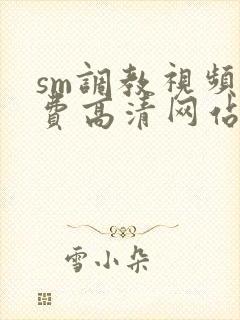 sm調教視頻
費高清网佔
雪小朵